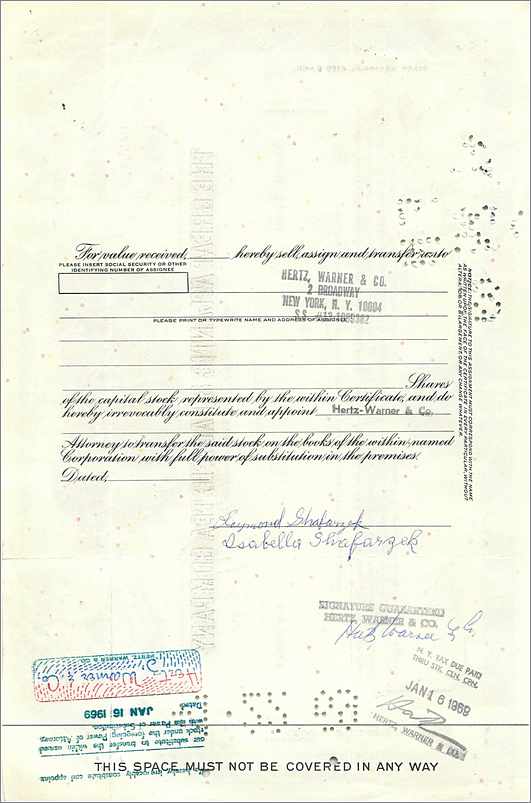 For value received, hereby sell, assign and transfer unto
PLEASE INSERT SOCIAL SECURITY OR OTHER
IDENTIFYING NUMBER OF ASSIGNEE
HERTZ, WARNER & CO.
2 BROADWAY
NEW YORK, N. Y. 10004
PLEASE PRINT OR TYPEWRITE NAME AND ADDRESS OF ASSIGNEE
Shares
of the capital stock represented by the within Certificate, and do
hereby irrevocably constitute and appoint Hertz-Warner & Co.
Attorney to transfer the said stock on the books of the within-named
Corporation with full power of substitution in the premises.
Dated,
NOTICE: THE SIGNATURE TO THIS ASSIGNMENT MUST CORRESPOND WITH THE NAME
AS WRITTEN UPON THE FACE OF THE CERTIFICATE IN EVERY PARTICULAR, WITHOUT
ALTERATION OR ENLARGEMENT OR ANY CHANGE WHATEVER.
Raymond Shafarzek
Isabella Shafarzek
SIGNATURE GUARANTEED
HERTZ, WARNER & CO.
Hertz Warner & Co.
N. Y. TAX DUE PAID
THRU STK. CLR. CRN.
JAN 16 1969
HERTZ, WARNER & CO.
HERTZ, WARNER & CO.
Hertz, Warner & Co.
hereby irrevocably constitute and appoint
our substitute to transfer the within named
stock under the foregoing Power of Attorney,
with like Power of Substitution.
Dated:
JAN 16 1969
THIS SPACE MUST NOT BE COVERED IN ANY WAY